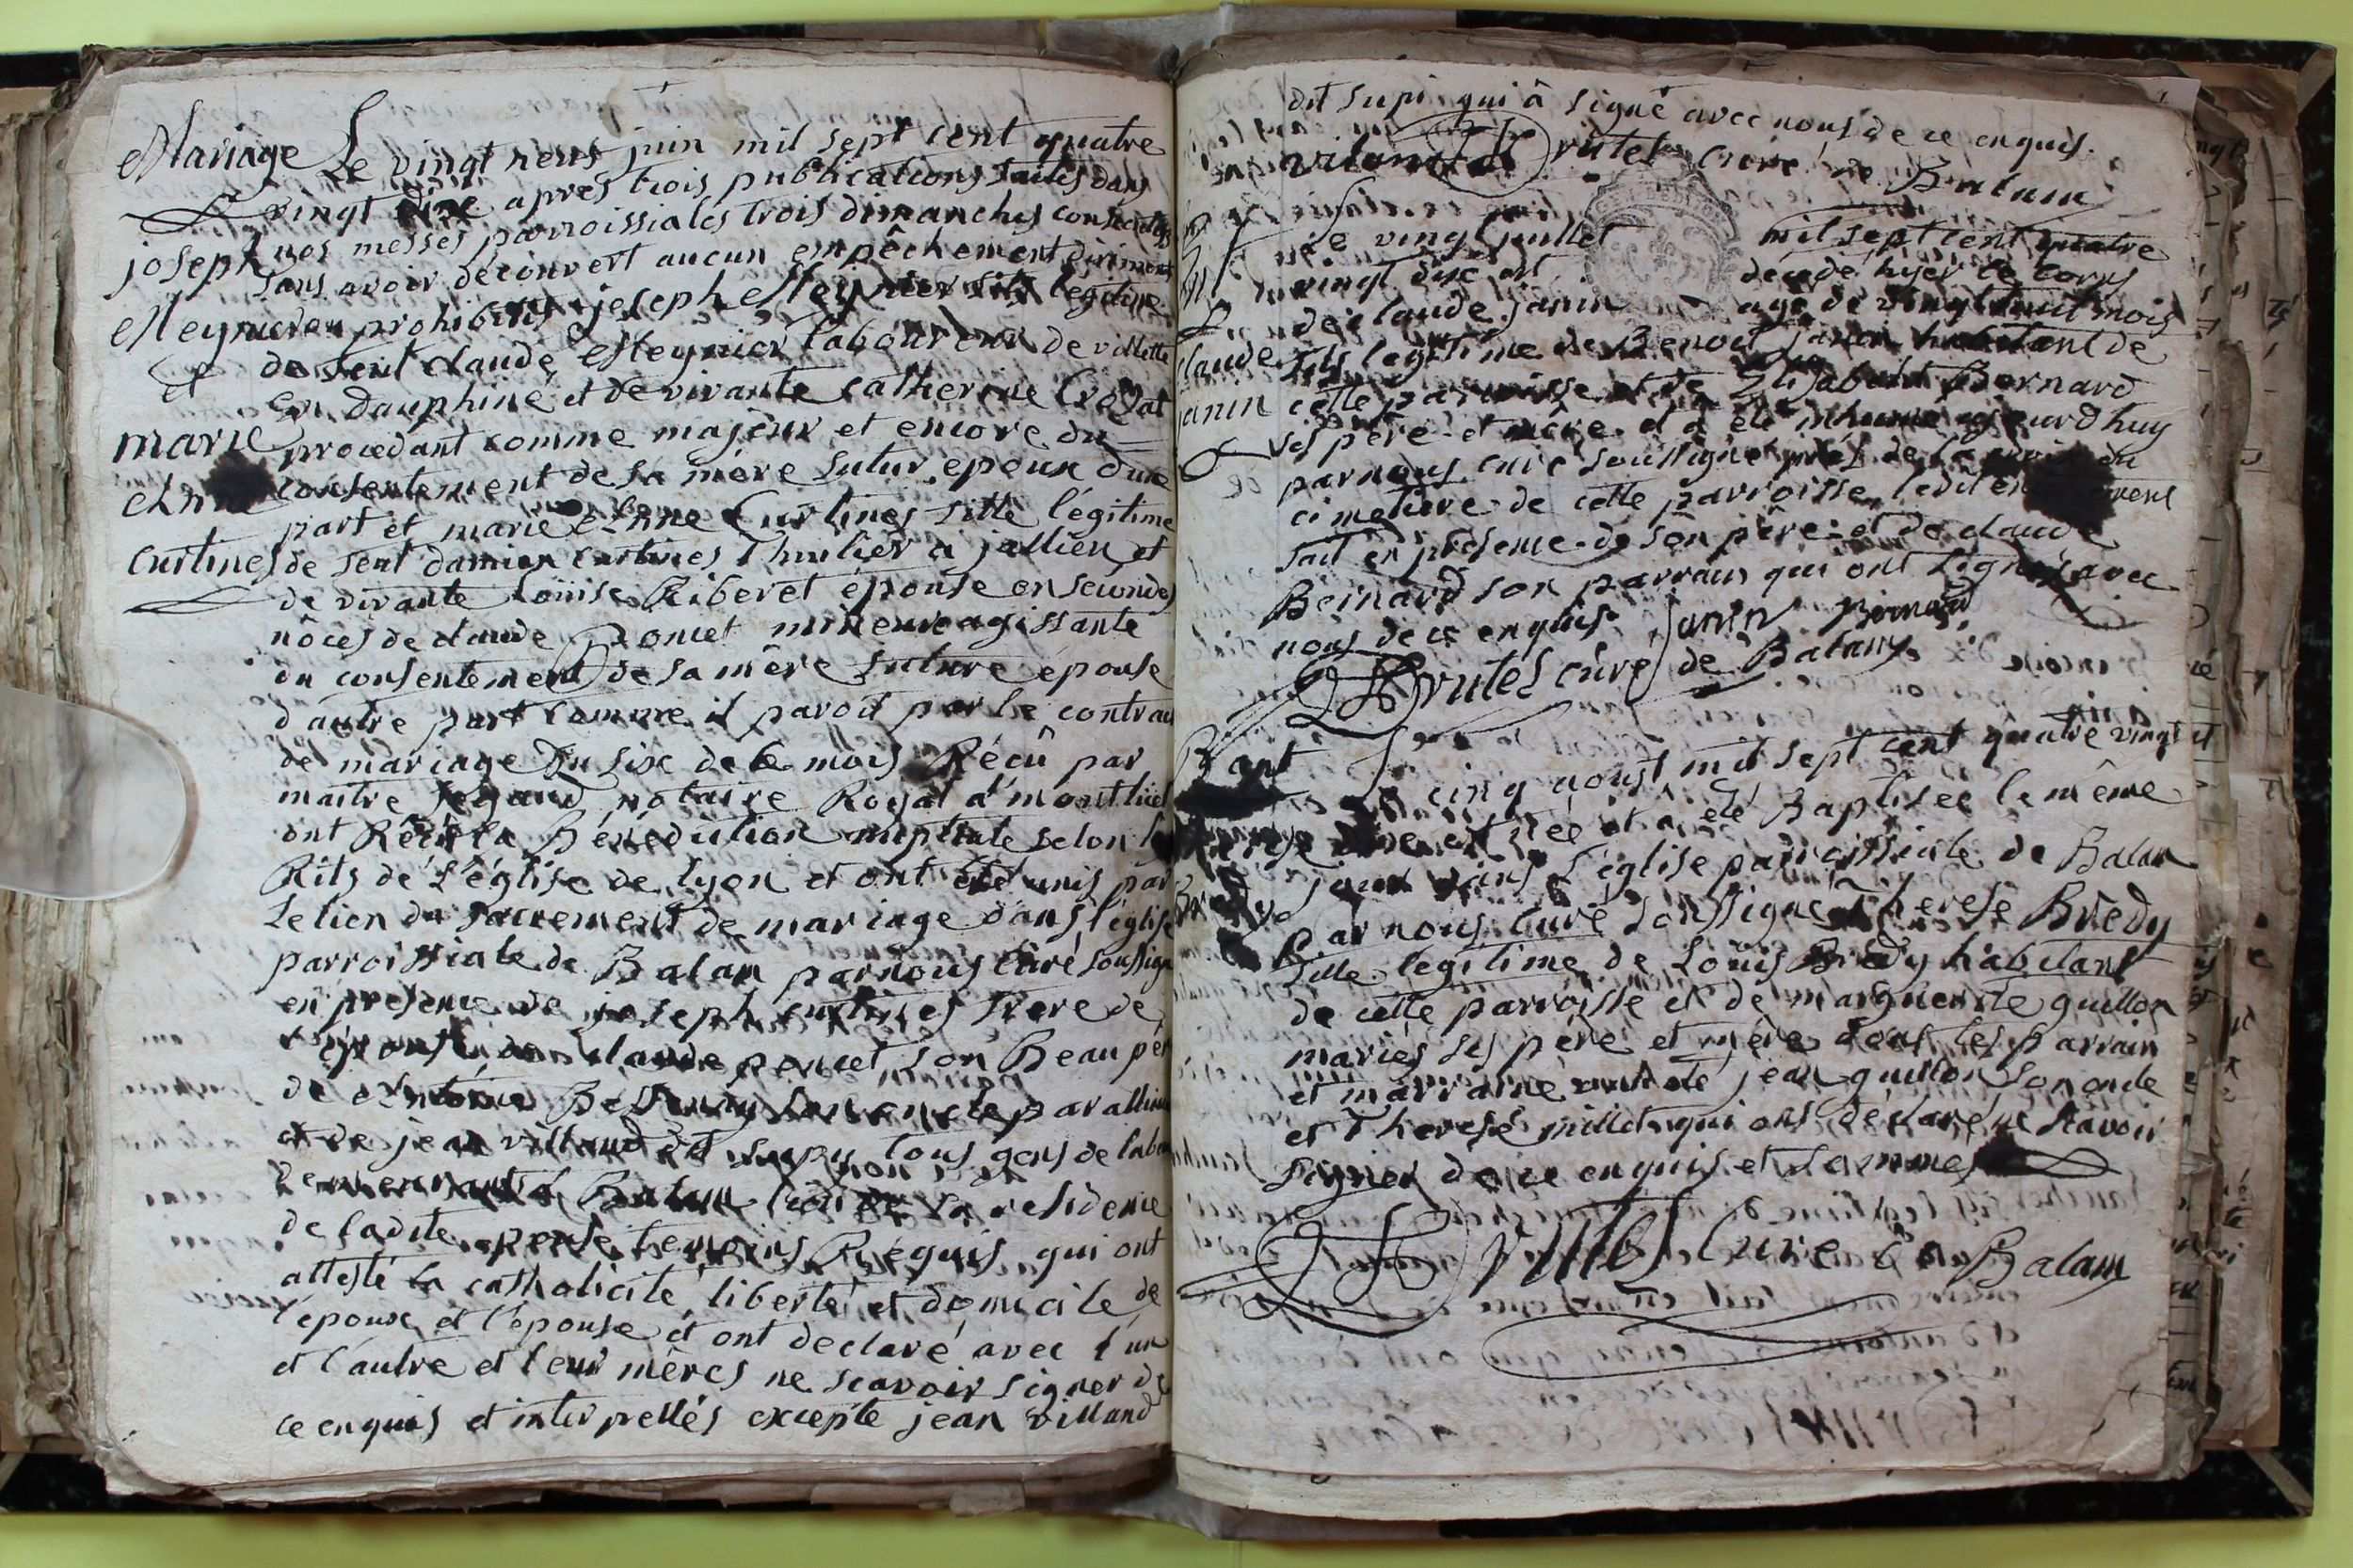 Mariage Le vingt neuf juin mil sept cent quatre
vingt dixe apres trois publications faites dans
nos messes parroissiales trois dimanches consecutifs
joseph sans avoir decouvert aucun empêchement diriment
Meynier prohibitif joseph Meynier fils légitime
de feut claude Meynier laboureur de villette
et en dauphiné et de vivante catherine Croyat
marie procedant comme majeur et encore du
consentement de sa mère futur epoux d'une
Anne part et marie Anne Curtines fille légitime
curtines de feut damien curtines Thuilier a jallieu et
de vivante Loüise Riberet epouse en secondes
nôces de claude Poncet mineure agissante
du consentement de sa mère future épouse
d'autre part comme il paroit par le contrat
de mariage du sixe de ce mois Récû par
maitre notaire Royal a montluel
ont Récû la Bénédiction nuptiale selon le
Rits de l'église de lyon et ont été unis par
Le lien du sacrement de mariage dans l'église
parroissiale de Balan par nous curé soussigné
en presence de joseph curtines frere de
l'epouse de claude poncet son Beau père
de Antoine son oncle par alliance
et de jean villand dit supi tous gens de labeur
demeurants a Balan lieu de la residence
de ladite epouse temoins Réquis qui ont
attesté la catholicité, liberté et domicile de
l'epoux et l'épouse et ont declaré avec l'un
et l'autre et leur mères ne scavoir signer de
ce enquis et interpellés excepté jean villand
dit supi qui â signé avec nous de ce enquis.
viland Brutel Curé de Balan
Le vingt juillet mil sept cent quatre
vingt dixe est décédé hyer le corps
de claude janin agé de vingt huit mois
claude fils legitime de Benoit janin habitant de
janin cette parroisse et de Elisabeth Bernard
ses père et mère et a été inhumé aujourdhuy
par nous curé soussigné près de la croix du
cimetiere de cette parroisse, ledit enterrement
fait en présence de son père et de claude
Bernard son parrain qui ont signés avec
nous de ce enquis. Janin Bernard
Brutel cûré de Balan
Bapt Le cinq aoust mil sept cent quatre vingt et
therese dixe est née et a été Baptisée le même
jour dans l'église parroissiale de Balan
Bredy Par nous curé soussigné Therese Bredy
fille légitime de Loüis Bredy habitant
de cette parroisse et de marguerite guillon
mariés ses père et mère dont les parrain
et marraine ont été jean guillon son oncle
et Therese millet qui ont déclaré ne scavoir
signer de ce enquis et sommés
Brutel Curé de Balan